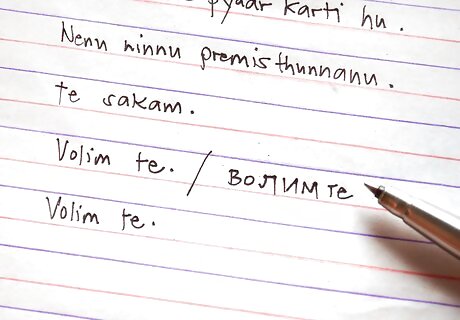 pyaar karti hu.
Nenu ninnu premisthunnanu.
te sakam.
Volim te. / ВОЛИМ те
Volim te.